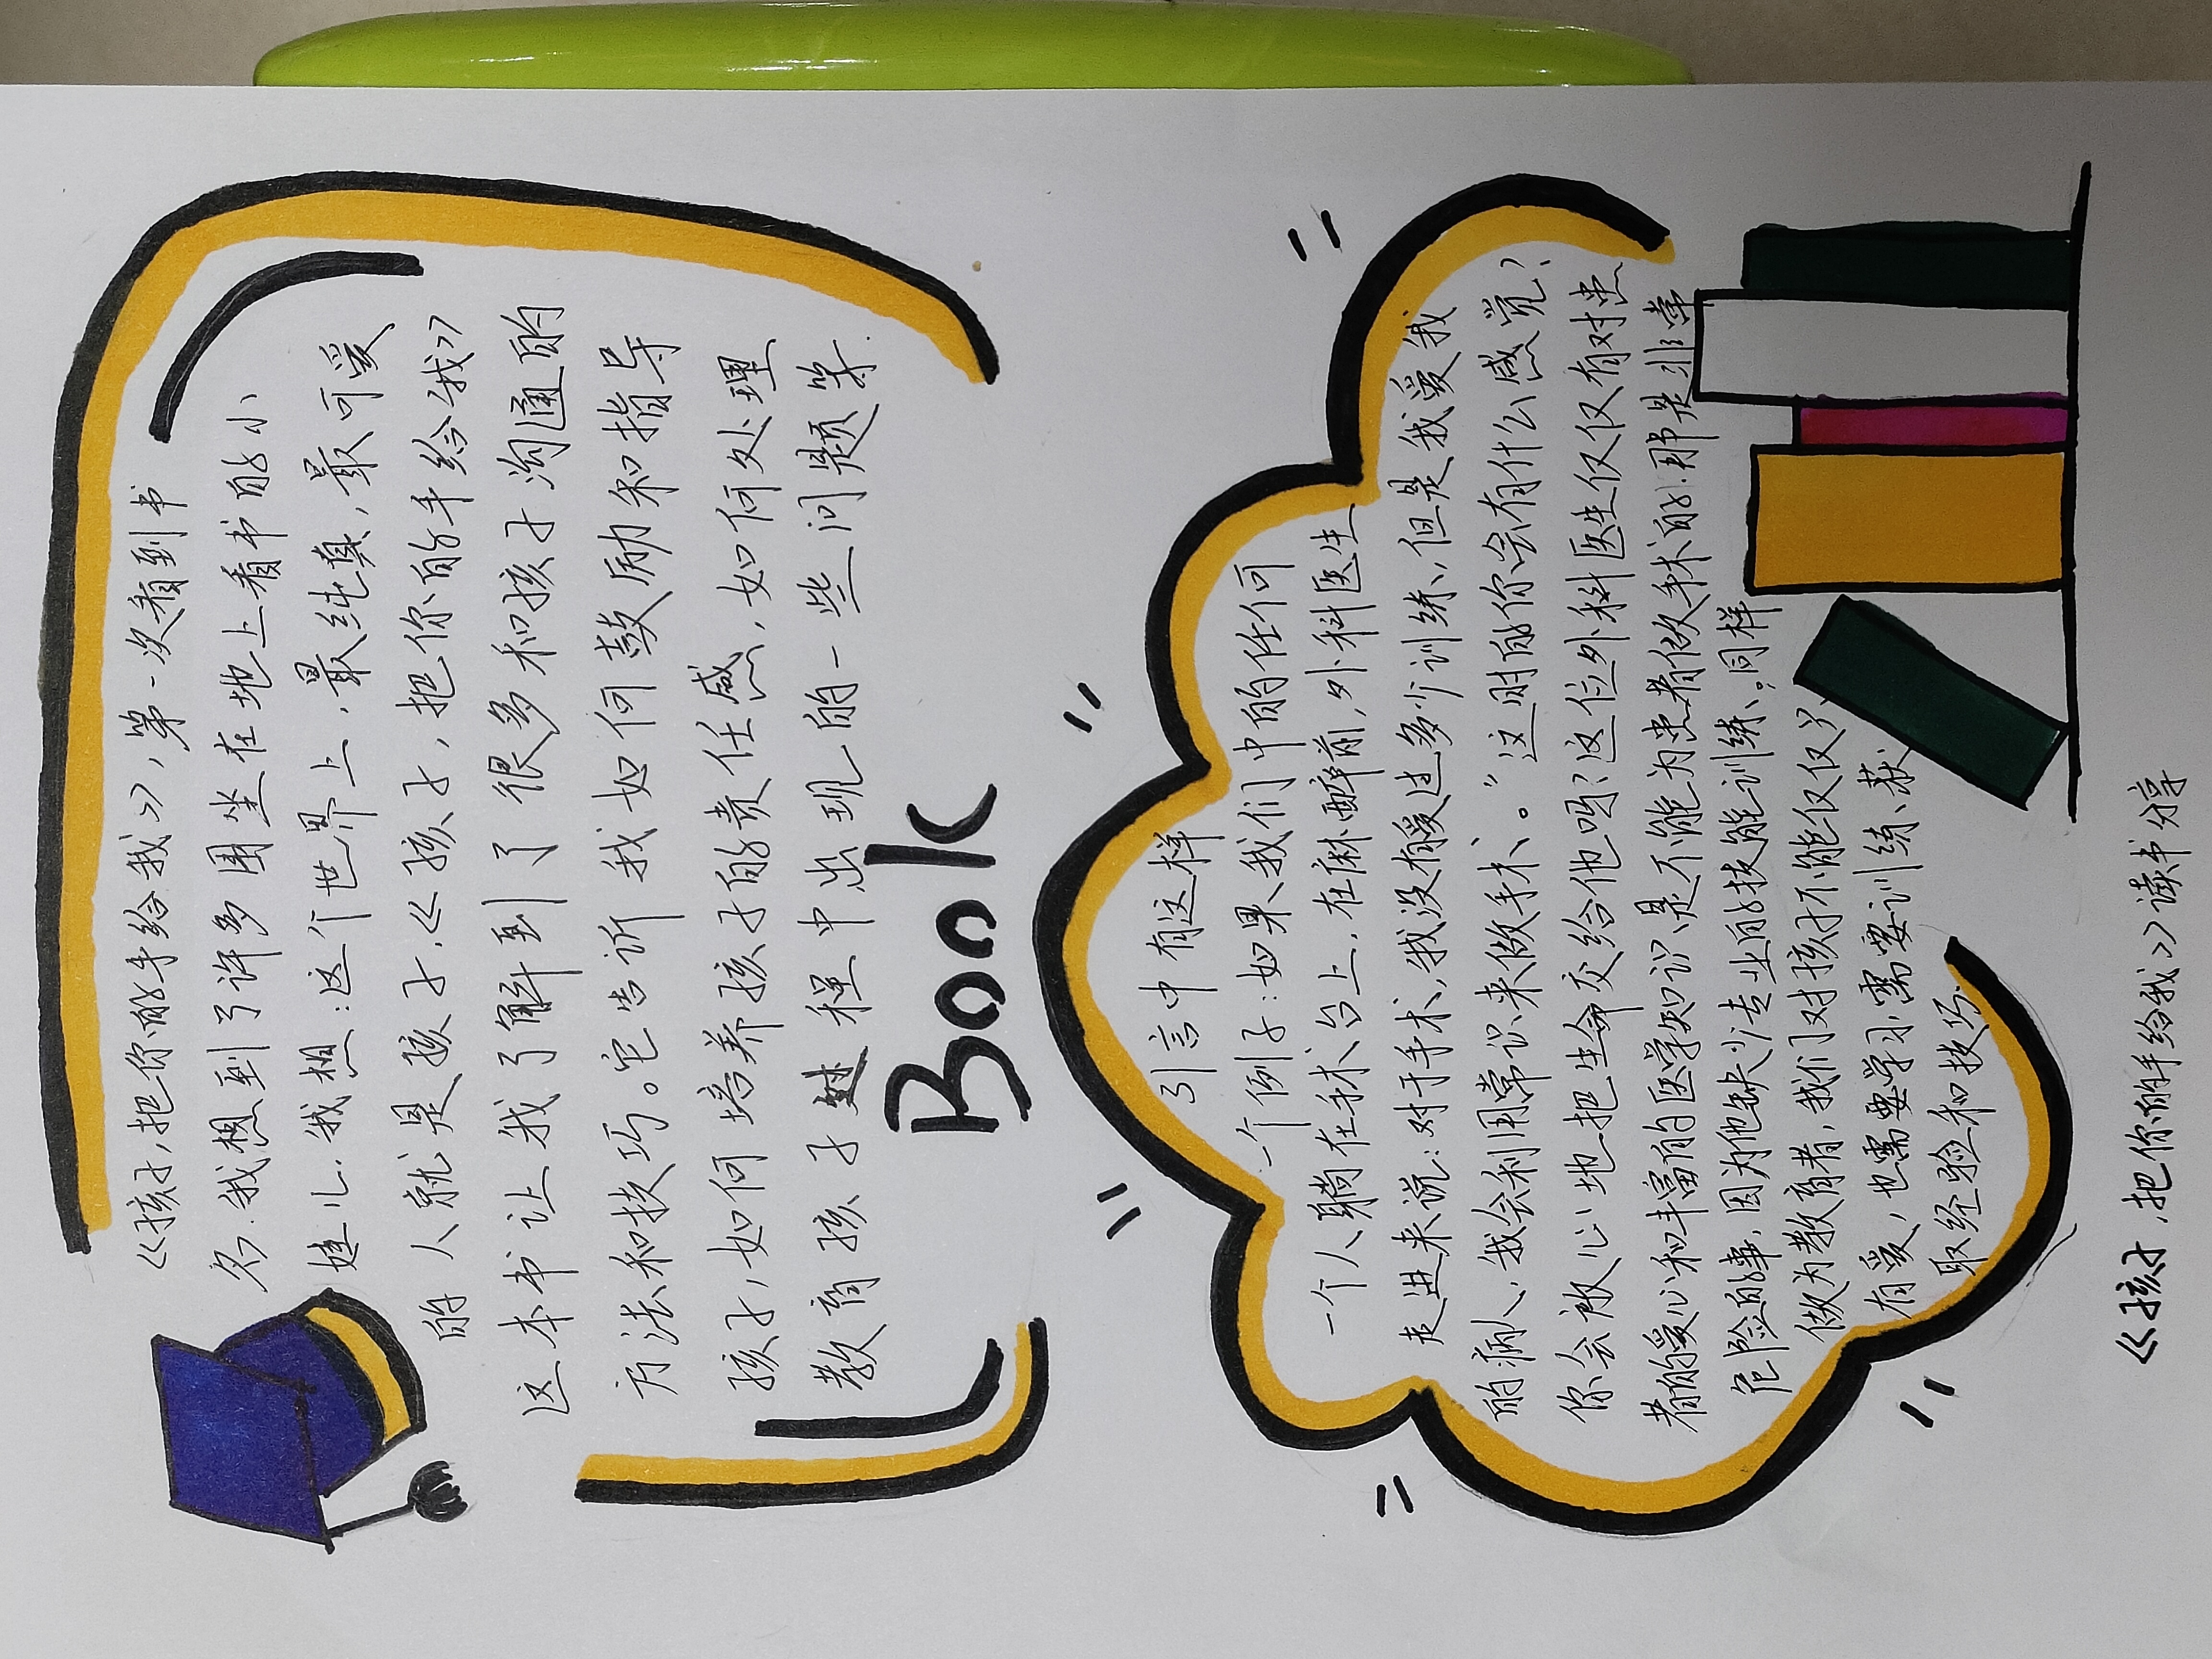 《孩子,把你的手给我》,第一次看到书
名.我想到了许多围坐在地上看书的小
娃儿.我想:这个世界上,最纯真,最可爱
的人就是孩子.《孩子,把你的手给我》
这本书让我了解到了很多和孩子沟通的
方法和技巧。它告诉我如何鼓励和指导
孩子,如何培养孩子的责任感,如何处理
教育孩子过程中出现的一些问题等.
Book
引言中有这样
一个例子:如果我们中的任何
一个人躺在手术台上.在麻醉前,外科医生
走进来说:对于手术,我没有受过多少训练,但是我爱我
的病人,我会利用常识来做手术。"这时的你会有什么感觉?
你会放心地把生命交给他吗?这位外科医生仅仅有对患
者的爱心和丰富的医学知识是不能为患者做手术的.那是非常
危险的事,因为他缺少专业的技能训练;同样
做为教育者,我们对孩子不能仅仅
有爱,也需要学习,需要训练,获
取经验和技巧.
《孩子,把你的手给我》读书分享